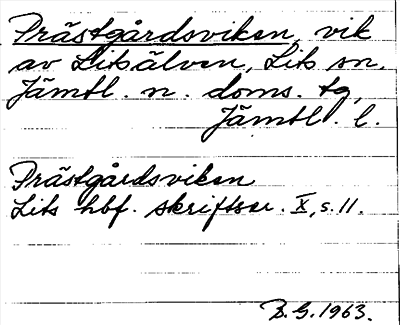 Prästgårdsviken, vik
av Litsälven, Lits sn,
Jämtl. n. doms. tg,
Jämtl. l.
Prästgårdsviken
Lits hbf. skriftser. X, s. 11.
B. G. 1963.